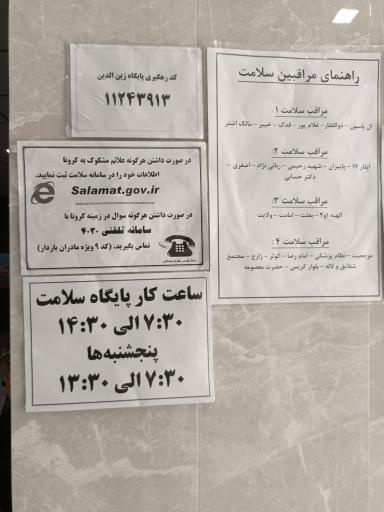 کد رهگیری پایگاه زین الدین
۱۱۲۴۳۹۱۳
در صورت داشتن هرگونه علائم مشکوک به کرونا
اطلاعات خود را در سامانه سلامت ثبت نمایید.
Salamat.gov.ir
در صورت داشتن هرگونه سوال در زمینه کرونا با
سامانه تلفنی ۴۰۳۰
تماس بگیرید. (کد ۹ ویژه مادران باردار)
ساعت کار پایگاه سلامت
۷:۳۰ الی ۱۴:۳۰
پنجشنبه‌ها
۷:۳۰ الی ۱۳:۳۰
راهنمای مراقبین سلامت
مراقب سلامت ۱:
ال یاسین - ذوالفقار - غلام پور - فدک - خیبر - مالک اشتر
مراقب سلامت ۲:
ایثار ۱۷ - پاییزان - شهید رحیمی - ربانی نژاد - اصغری -
دکتر حسابی
مراقب سلامت ۳:
الهیه ۱و۲ - بعثت - امامت - ولایت
مراقب سلامت ۴:
مرجعیت - نظام پزشکی - امام رضا - کوثر - زارع - مجتمع
شقایق و لاله - بلوار کریمی - حضرت معصومه